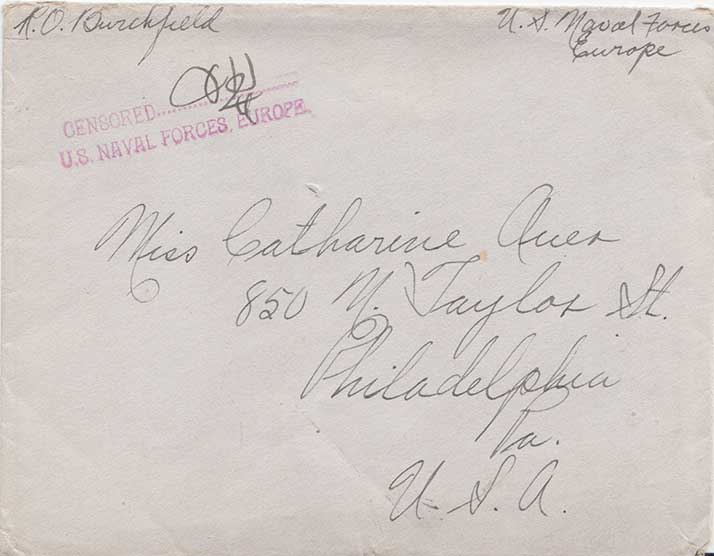 R. O. Burchfield
U. S. Naval Forces
Europe
CENSORED
U.S. NAVAL FORCES, EUROPE.
Miss Catharine Auer
850 N. Taylor St.
Philadelphia
Pa.
U. S. A.